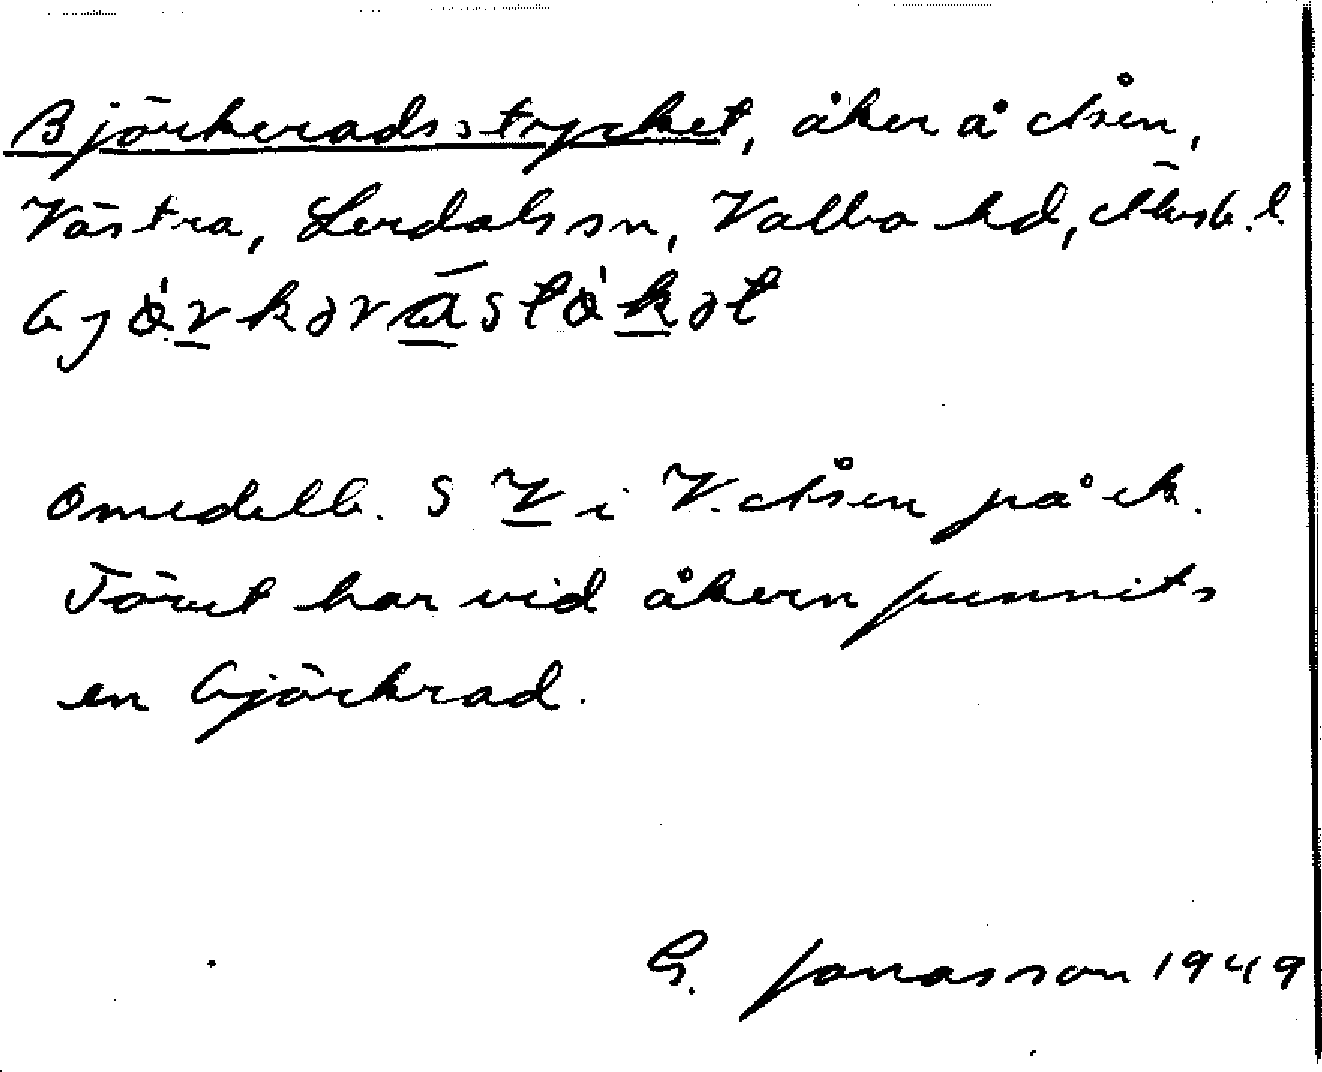 Björkeradsstycket, åker å Åsen,
Västra, Lerdals sn, Valbo hd, Älvsb. l.
Omedelb. S V i V. Åsen på ek.
Förut har vid åkern funnits
en björkrad.
G. Jonasson 1949